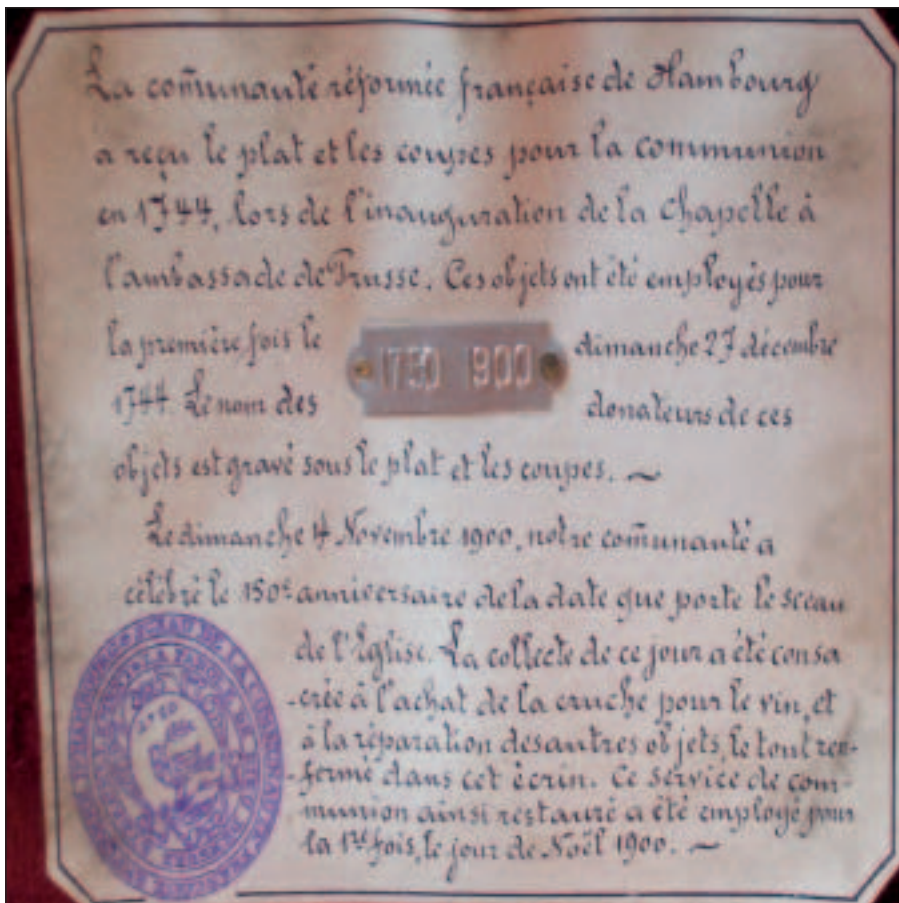 La com̄unauté réformée française de Hambourg
a reçu le plat et les coupes pour la communion
en 1744, lors de l'inauguration de la chapelle à
l'ambassade de Prusse. Ces objets ont été employés pour
la première fois le dimanche 27 décembre
1750 1900
1744. Le nom des donateurs de ces
objets est gravé sous le plat et les coupes. ~
Le dimanche 4 Novembre 1900, notre com̄unauté a
célébré le 150e anniversaire de la date que porte le sceau
de l'Église. La collecte de ce jour a été consa
-crée à l'achat de la cruche pour le vin, et
à la réparation des autres objets, le tout ren-
-fermé dans cet écrin. Ce service de com-
-munion ainsi restauré a été employé pour
la 1re fois, le jour de Noël 1900. ~